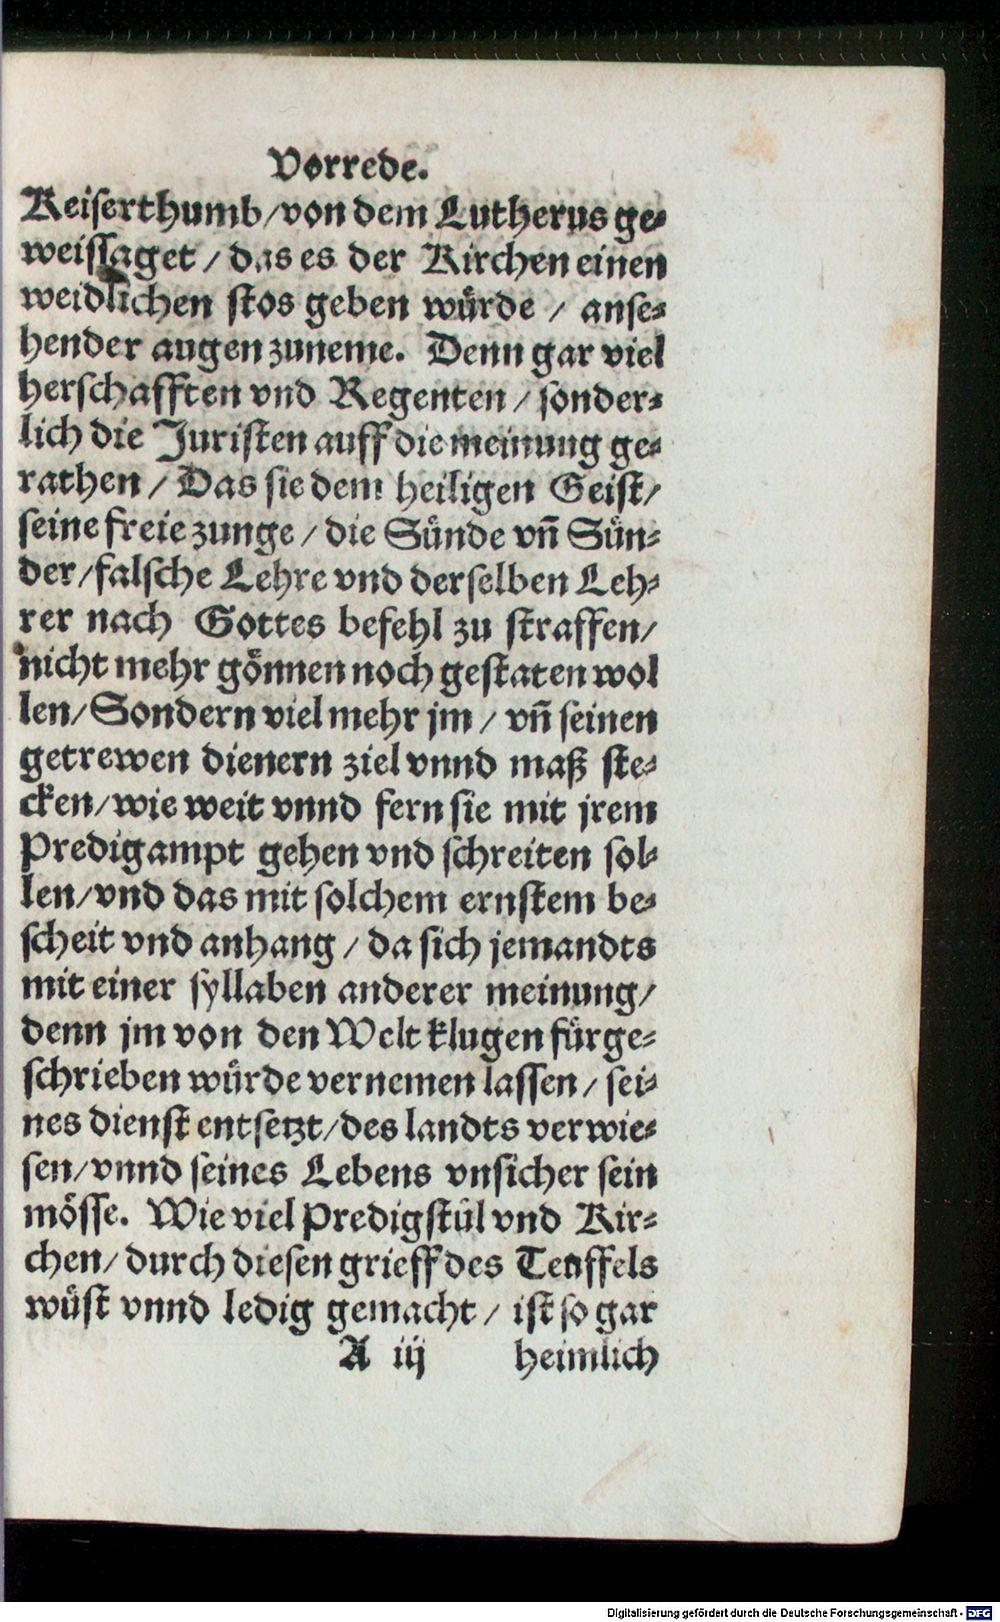 Vorrede.
Keiserthumb/von dem Lutherus ge-
weissaget / das es der Kirchen einen
weidlichen stos geben würde / anse-
hender augen zuneme. Denn gar viel
herschafften vnd Regenten / sonder-
lich die Juristen auff die meinung ge-
rathen / Das sie dem heiligen Geist/
seine freie zunge / die Sünde vñ Sün-
der/falsche Lehre vnd derselben Leh-
rer nach Gottes befehl zu straffen/
nicht mehr gönnen noch gestaten wol
len/Sondern viel mehr jm / vñ seinen
getrewen dienern ziel vnnd maß ste-
cken/wie weit vnnd fern sie mit jrem
Predigampt gehen vnd schreiten sol-
len/vnd das mit solchem ernstem be-
scheit vnd anhang / da sich jemandts
mit einer syllaben anderer meinung/
denn jm von den Welt klugen fürge-
schrieben würde vernemen lassen / sei-
nes dienst entsetzt/des landts verwie-
sen/vnnd seines Lebens vnsicher sein
mösse. Wie viel Predigstül vnd Kir-
chen/durch diesen grieff des Teuffels
wüst vnnd ledig gemacht / ist so gar
A iij heimlich
Digitalisierung gefördert durch die Deutsche Forschungsgemeinschaft - DFG